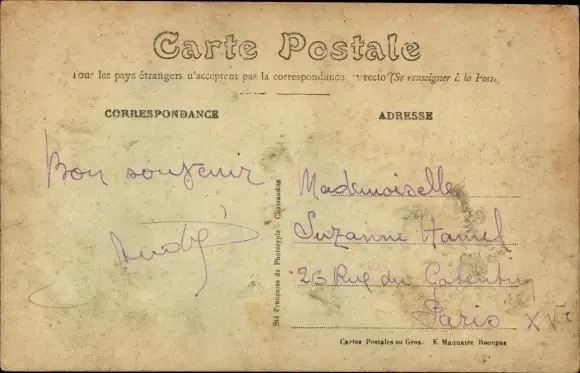 Carte Postale
Tous les pays étrangers n'acceptent pas la correspondance au recto (Se renseigner à la Poste
CORRESPONDANCE
ADRESSE
Bon souvenir
André
Mademoiselle
Suzanne Hamel
26 Rue du
Paris XVI
Sté Française de Phototypie - Châteaudun
Cartes Postales en Gros. E. Maquaire Bourges